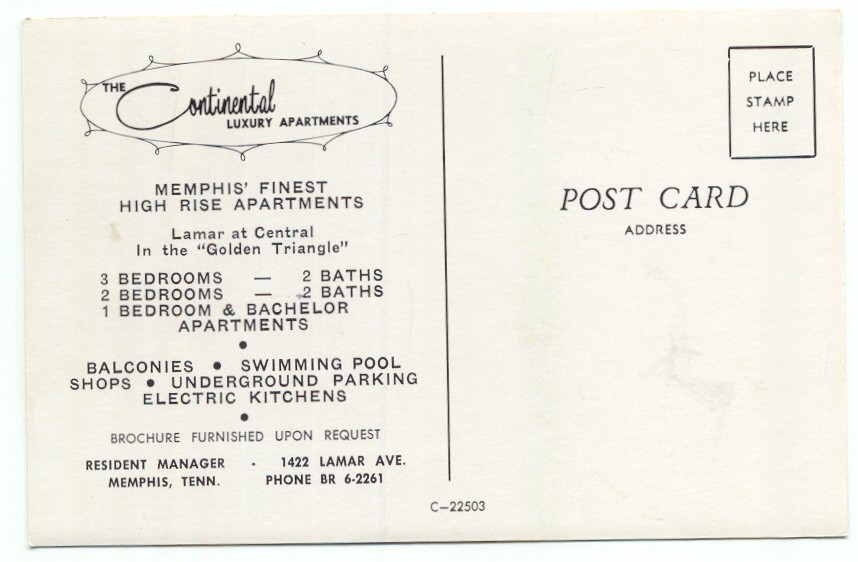 THE Continental
LUXURY APARTMENTS
MEMPHIS' FINEST
HIGH RISE APARTMENTS
Lamar at Central
In the "Golden Triangle"
3 BEDROOMS — 2 BATHS
2 BEDROOMS — 2 BATHS
1 BEDROOM & BACHELOR
APARTMENTS
•
BALCONIES • SWIMMING POOL
SHOPS • UNDERGROUND PARKING
ELECTRIC KITCHENS
•
BROCHURE FURNISHED UPON REQUEST
RESIDENT MANAGER - 1422 LAMAR AVE.
MEMPHIS, TENN. PHONE BR 6-2261
C-22503
PLACE
STAMP
HERE
POST CARD
ADDRESS